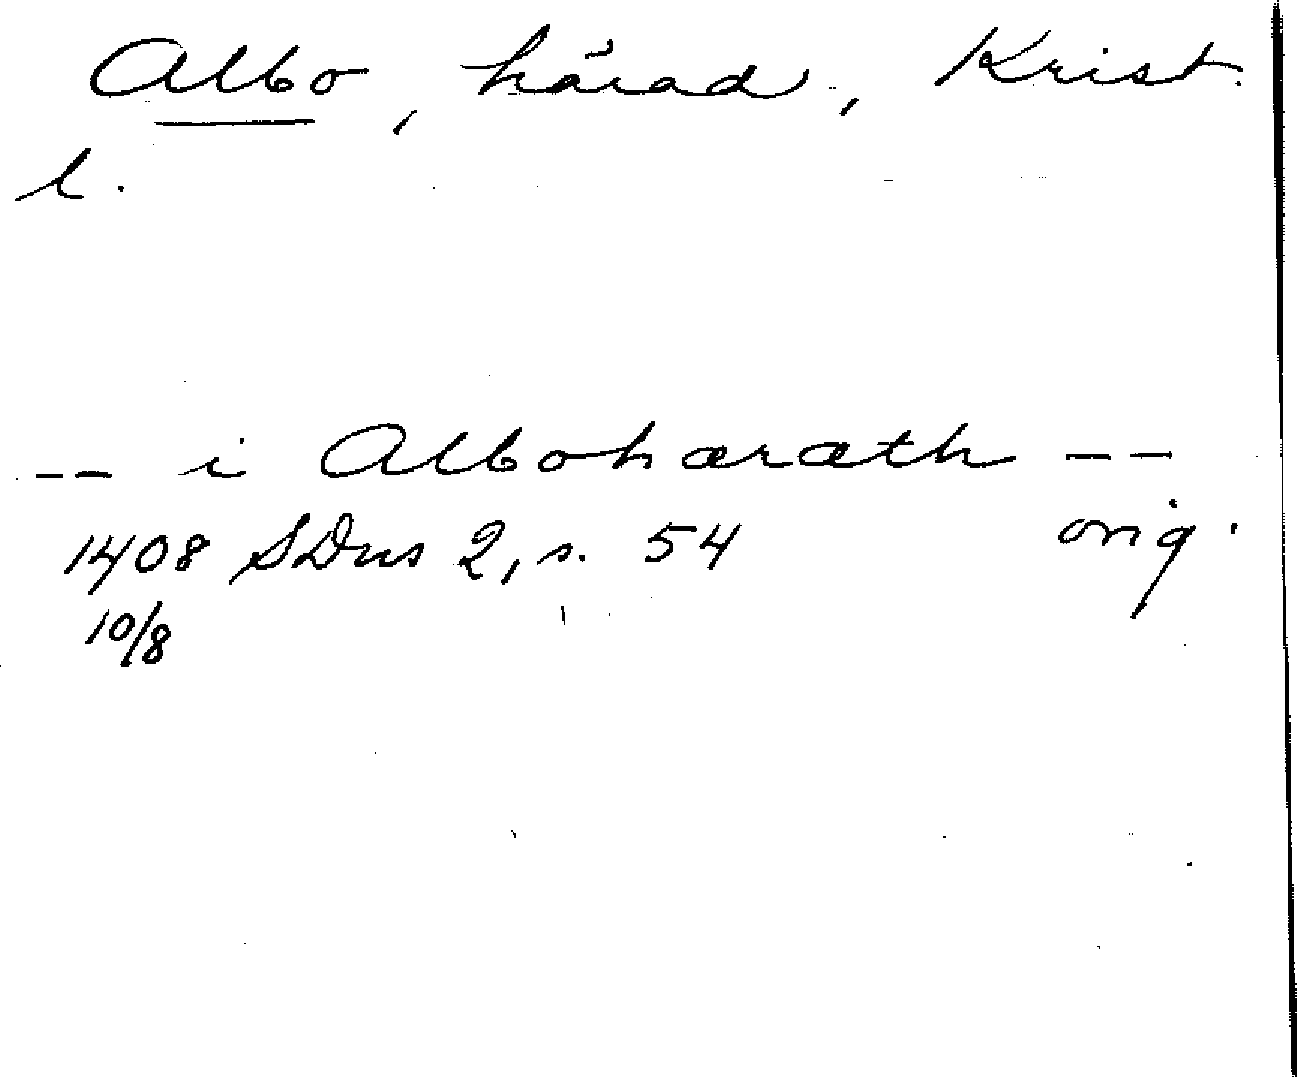 Albo, härad, Krist.
l.
-- i Albohæræth --
1408 SDns 2, s. 54 orig.
10/8